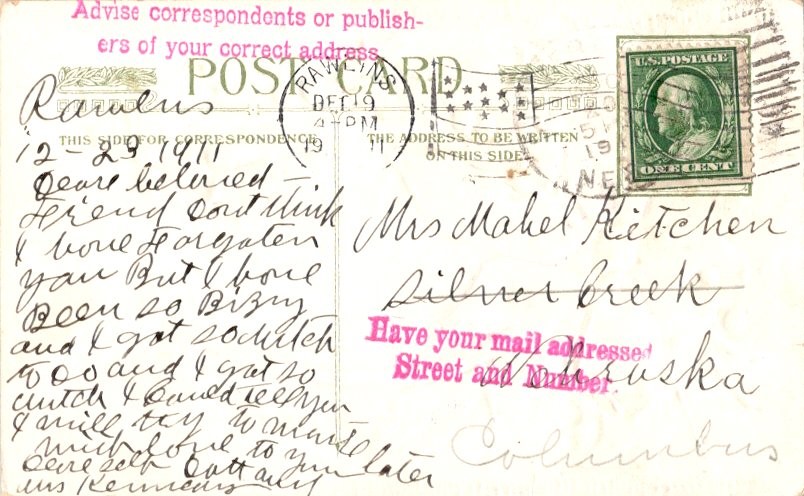 Advise correspondents or publish-
ers of your correct address.
POST CARD
RAWLINS
DEC 19
4 PM
19 11
U.S. POSTAGE
ONE CENT
NEB
THIS SIDE FOR CORRESPONDENCE
THE ADDRESS TO BE WRITTEN
ON THIS SIDE
Rawlins
12-23 1911
Deare beloved
Friend dont think
I hove Forgoten
you But I hove
Been so Bizny
and I got so mutch
to do and I got so
mutch I Could tell you
I will try to
mich love to you later
deare
Mrs Kennedy
Mrs Mabel Kitchen
Silver Creek
Nebraska
Have your mail addressed
Street and Number.
Columbus